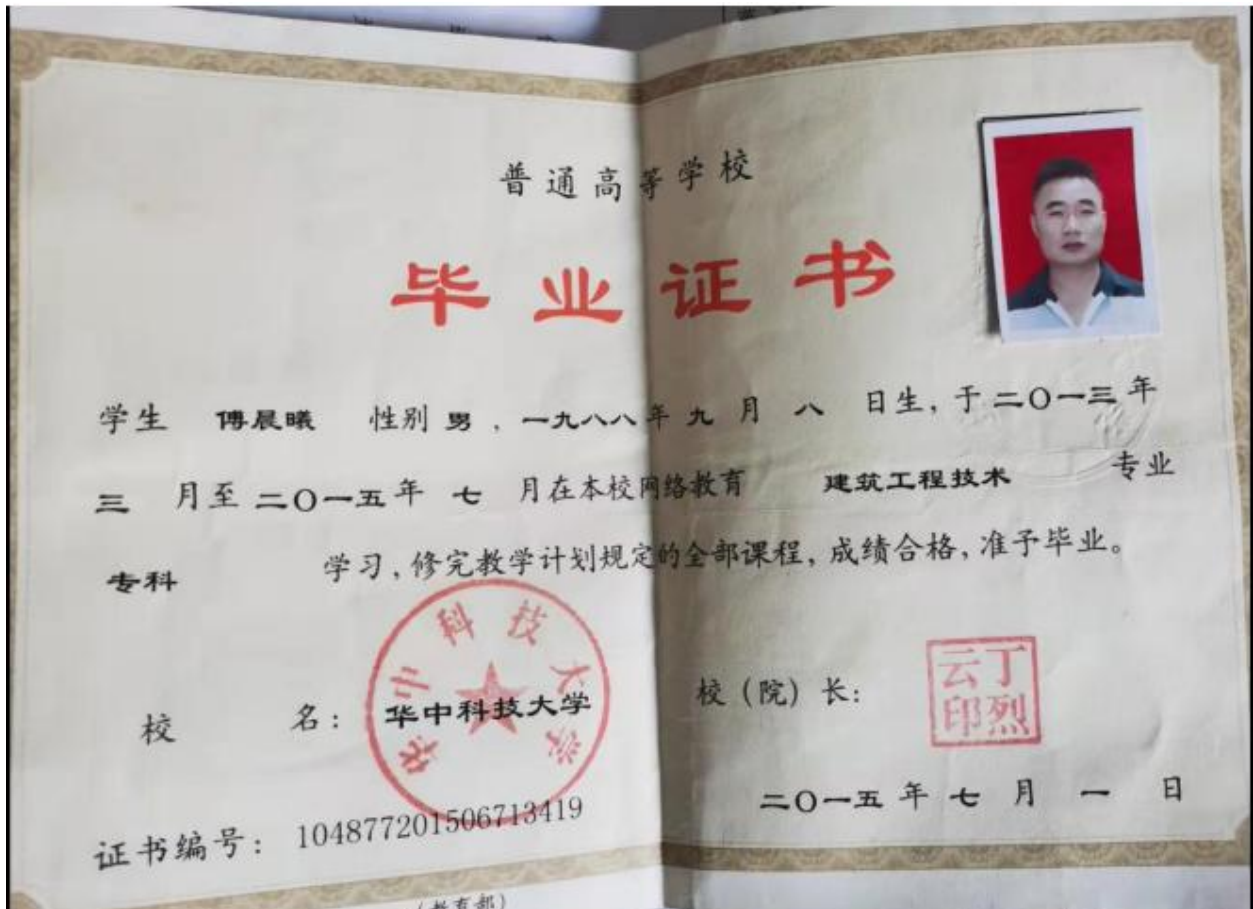 普通高等学校
毕业证书
学生 傅晨曦 性别 男，一九八八年九月八日生，于二〇一三年
三月至二〇一五年七月在本校网络教育 建筑工程技术 专业
专科 学习，修完教学计划规定的全部课程，成绩合格，准予毕业。
华中科技大学
校名：华中科技大学 校（院）长：
丁烈云印
二〇一五年七月一日
证书编号：104877201506713419